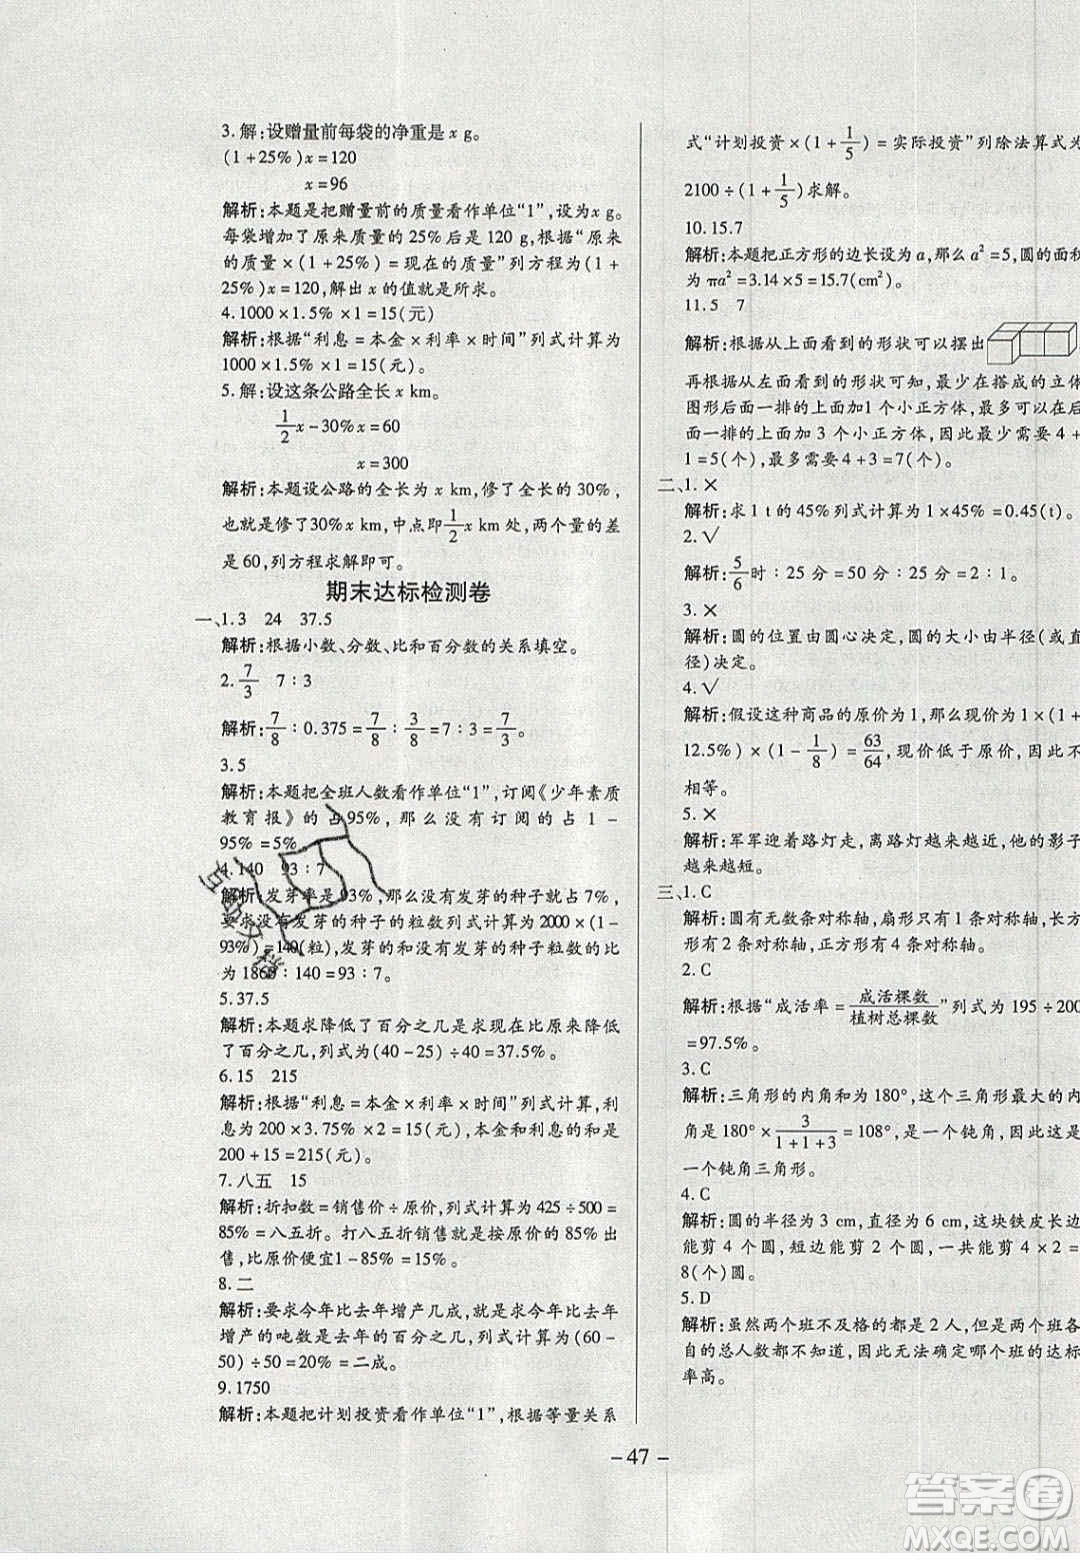 3.解:设赠量前每袋的净重是 x g。
(1+25%)x=120
x=96
解析:本题是把赠量前的质量看作单位“1”,设为x g。
每袋增加了原来质量的25%后是120 g,根据“原来
的质量×(1+25%)=现在的质量”列方程为(1+
25%)x=120,解出 x 的值就是所求。
4.1000×1.5%×1=15(元)
解析:根据“利息=本金×利率×时间”列式计算为
1000×1.5%×1=15(元)。
5.解:设这条公路全长 x km。
1/2x-30%x=60
x=300
解析:本题设公路的全长为 x km,修了全长的30%,
也就是修了30%x km,中点即1/2x km 处,两个量的差
是60,列方程求解即可。
期末达标检测卷
一、1.3 24 37.5
解析:根据小数、分数、比和百分数的关系填空。
2.7/3 7∶3
解析:7/8∶0.375=7/8∶3/8=7∶3=7/3。
3.5
解析:本题把全班人数看作单位“1”,订阅《少年素质
教育报》的占95%,那么没有订阅的占1-
95%=5%。
4.140 93∶7
解析:发芽率是93%,那么没有发芽的种子就占7%,
要求没有发芽的种子的粒数列式计算为2000×(1-
93%)=140(粒),发芽的和没有发芽的种子的比
为1860∶140=93∶7。
5.37.5
解析:本题求降低了百分之几是求现在比原来降低
了百分之几,列式为(40-25)÷40=37.5%。
6.15 215
解析:根据“利息=本金×利率×时间”列式计算,利
息为200×3.75%×2=15(元),本金和利息一共是
200+15=215(元)。
7.八五 15
解析:折扣数=销售价÷原价,列式计算为425÷500=
85%=八五折。打八五折销售是按原价的85%出
售,比原价便宜1-85%=15%。
8.二
解析:要求今年比去年增产几成,就是求今年比去年
增产的吨数是去年的百分之几,列式计算为(60-
50)÷50=20%=二成。
9.1750
解析:本题把计划投资看作单位“1”,根据等量关系
式“计划投资×(1+1/5)=实际投资”列除法算式为
2100÷(1+1/5)求解。
10.15.7
解析:本题把正方形的边长设为a,那么a²=5,圆的面积
为πa²=3.14×5=15.7(cm²)。
11.5 7
解析:根据从上面看到的形状可以摆出
再根据从左面看到的形状可知,最少在搭成的立体
图形后面一排的上面加1个小正方体,最多可以在
后面一排的上面加3个小正方体,因此最少需要4+
1=5(个),最多需要4+3=7(个)。
二、1.×
解析:求1 t的45%列式计算为1×45%=0.45(t)。
2.√
解析:5/6时∶25分=50分∶25分=2∶1。
3.×
解析:圆的位置由圆心决定,圆的大小由半径(或直
径)决定。
4.√
解析:假设这种商品的原价为1,那么现价为1×(1+
12.5%)×(1-1/8)=63/64,现价低于原价,因此不
相等。
5.×
解析:军军迎着路灯走,离路灯越来越近,他的影子
越来越短。
三、1.C
解析:圆有无数条对称轴,扇形只有1条对称轴,
形有2条对称轴,正方形有4条对称轴。
2.C
解析:根据“成活率=成活棵数/植树总棵数”列式为195÷200
=97.5%。
3.C
解析:三角形的内角和为180°,这个三角形最大的内
角是180°×3/(1+1+3)=108°,是一个钝角,因此这是
一个钝角三角形。
4.C
解析:圆的半径为3 cm,直径为6 cm,这块铁皮长边
能剪4个圆,短边能剪2个圆,一共能剪4×2=
8(个)圆。
5.D
解析:虽然两个班不及格的都是2人,但两个班各
自的总人数都不知道,因此无法确定哪个班的达标
率高。
-47-
答案圈
MXQE.COM